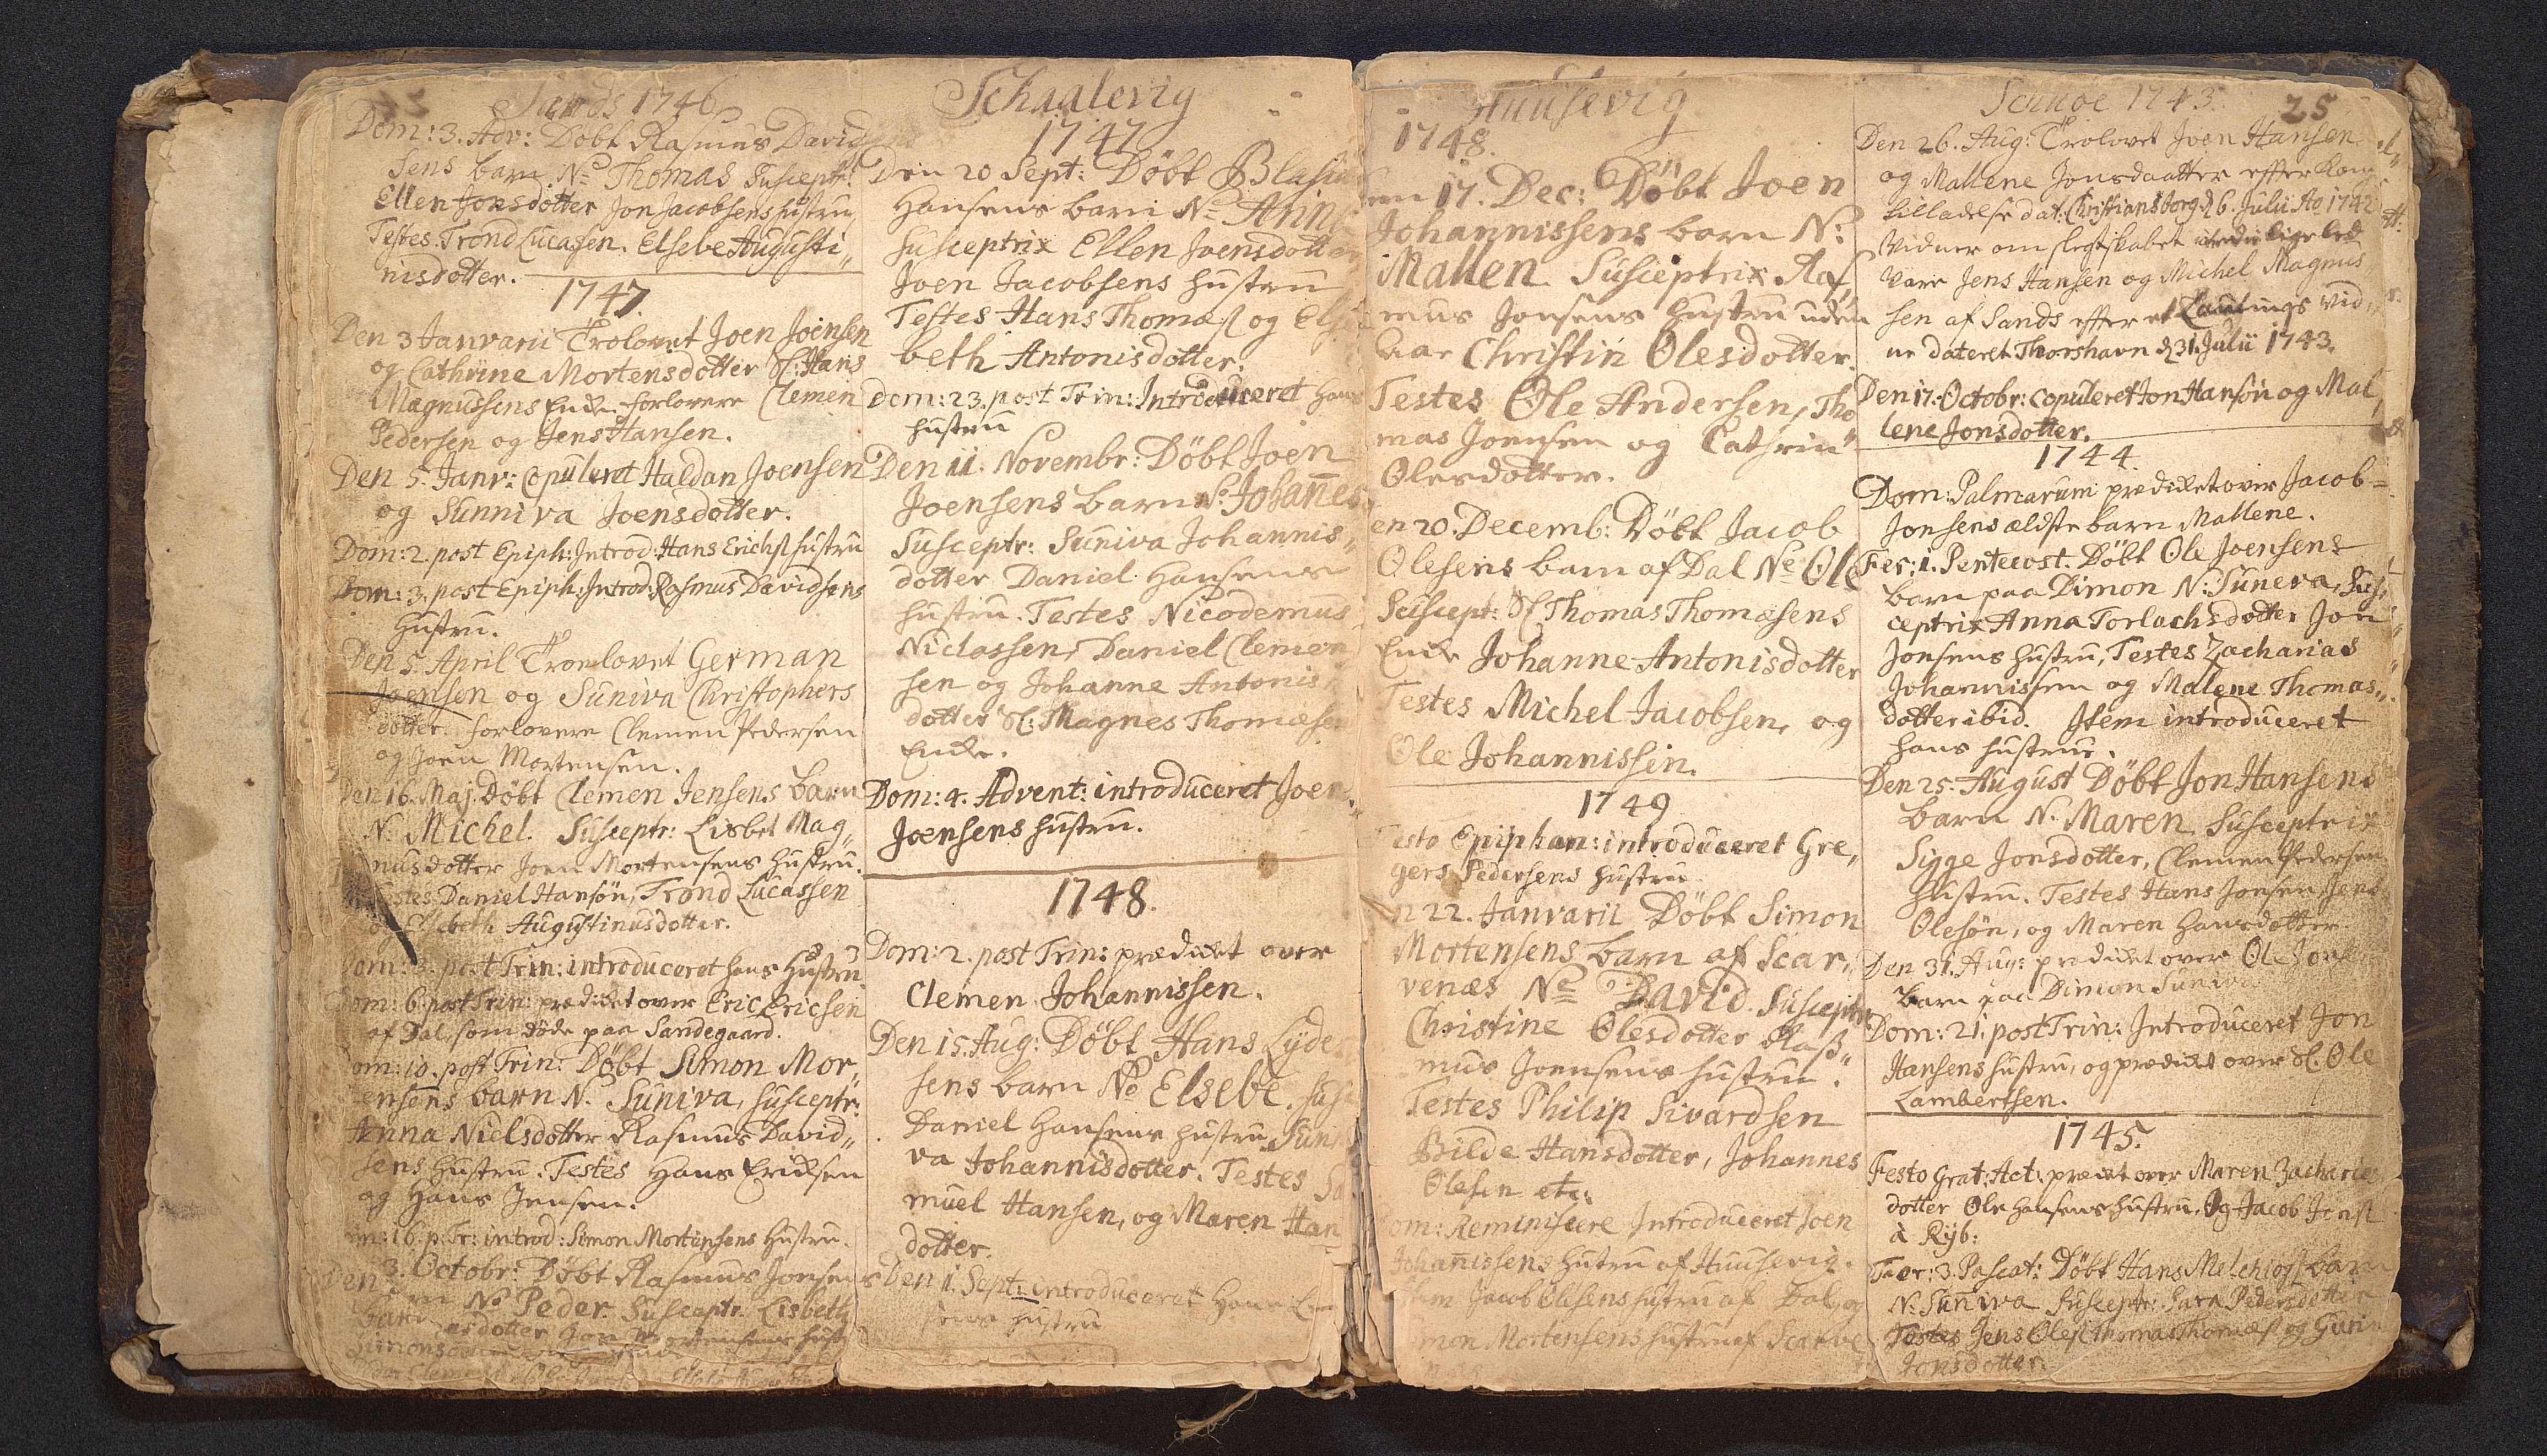 Sands 1746
Dom: 3. Adv: Döbt Rasmus David
sens barn No Thomas Susceptr:
Ellen Jonsdotter Jon Jacobsens hustru
Testes Trond Lucasen. Elsebe Augusti„
nisdotter.
1747.
Den 3 Janvarii Trolovet Joen Joensen
og Cathrine Mortensdotter Sl: Hans
Magnussens Enke. forlovere Clemen
Pedersen og Jens Hansen.
Den 5. Janv: Copuleret Haldan Joensen
og Sunniva Joensdotter.
Dom: 2. post Epiph: Introd: Hans Erichs hustru
Dom: 3. post Epiph: Introd: Rasmus Davidsens
hustru.
Den 5. April Troelovet German
Joensen og Suniva Christophers
dotter. forlovere Clemen Pedersen
og Joen Mortensen.
Den 16. Maj. Döbt Clemen Jensens barn
N. Michel. Susceptr: Lisbet Mag„
nusdotter Joen Mortensens hustru.
Testes Daniel Hansön, Trond Lucassen
og Elsebeth Augustinusdotter.
Dom: 3. post Trin: introduceret hans hustru
Dom: 6. post Trin: prædiket over Eric Ericsen
af Dal, som döde paa Sandegaard.
Dom: 10. post Trin: Döbt Simon Mor„
tensens barn N. Suniva, susceptr:
Anna Nielsdotter Rasmus David„
sens hustru. Testes Hans Eriksen
og Hans Jensen.
16. p. Tr: introd: Simon Mortensens hustru.
Den 3. Octobr: Döbt Rasmus Jonsens
barn No Peder. Susceptr. Lisbeth
Simonsdotter Jon Mortensens hustru
Schaalevig
1747
Den 20 Sept: Döbt Blasius
Hansens barn No Anne
Susceptrix Ellen Joensdotter
Joen Jacobsens hustru
Testes Hans Thomæs og Else
beth Antonisdotter.
Dom: 23. post Trin: Introduceret hans
hustru
Den 11. Novembr: Döbt Joen
Joensens barn No Johanes
Susceptr: Suniva Johannis„
dotter Daniel Hansens
hustru. Testes Nicodemus
Niclassen, Daniel Clemen
sen og Johanne Antonis
dotter Sl: Magnes Thomæsen
Enke.
Dom: 4. Advent: introduceret Joen
Joensens hustru.
1748.
Dom: 2. post Trin: prædiket over
Clemen Johannissen.
Den 15. Aug: Döbt Hans Lyder
sens barn No Elsebe. Susc
Daniel Hansens hustru Suni
va Johannisdotter. Testes Sa
muel Hansen, og Maren Han
dotter.
Den 1. Sept: introduceret Hans
sens hustru
Huusevig
1748.
Den 17. Dec: Döbt Joen
Johannissens barn N:
Mallen. Susceptrix Ras„
mus Jonsens hustru uden
Aar Christin Olesdotter.
Testes Ole Andersen, Tho
mas Joensen og Cathrin
Olesdotter.
Den 20. Decemb: Döbt Jacob
Olesens barn af Dal No Ole
Suscept: Sl Thomas Thomæsens
Enke Johanne Antonisdotter
Testes Michel Jacobsen, og
Ole Johannissen.
1749
Festo Epiphan: introduceret Gre„
gers Pedersens hustru
Den 22. Janvarii Döbt Simon
Mortensens barn af Scar„
venæs No David. Susceptr
Christine Olesdotter Ras„
mus Joensens hustru.
Testes Philip Sivardsen
Bilde Hansdotter, Johannes
Olesen etc:
Dom: Reminiscere Introduceret Joen
Johanissens hustru af Huusevig.
Item Jacob Olesens hustru af Dal, og
Simon Mortensens hustru af Scarve
Scuuoe 1743. 25
Den 26. Aug: Trolovet Joen Hansen
og Mallene Jonsdaatter efter Kong
tilladelse dat: Christiansborg d 6. Julii Ao 1742
Vidner om slegtskabet
vare Jens Hansen og Michel Magnus
sen af Sands efter et Lavtings Vid„
ne dateret Thorshavn d 31. Julii 1743.
Den 17. Octobr: copuleret Jon Hansön og Mal„
lene Jonsdotter.
1744.
Dom: Palmarum prædiket over Jacob
Jonsens ældste barn Mallene.
Fer: 1. Pentecost. Döbt Ole Joensens
barn paa Dimon N: Suneva, Sus„
ceptrix Anna Torlachsdotter Jon
Jonsens hustru, Testes Zacharias
Johannissen og Malene Thomas„
dotter ibid. Item introduceret
hans hustrue.
Den 25. August Döbt Jon Hansens
barn N. Maren. Susceptrix
Sigge Jonsdotter, Clemen Pedersens
hustru. Testes Hans Jonsen, Jens
Olesön, og Maren Hansdotter.
Den 31. Aug: prædiket over Ole Jonsens
barn paa Dimon Suniva
Dom: 21. post Trin: Introduceret Jon
Hansens hustru, og prædiket over Sl. Ole
Lambertsen.
1745.
Festo Grat: Act: prædket over Maren Zacharies
dotter Ole Hansens hustru, Og Jacob Jens
à Ryb:
Fer: 3. Pascat: Döbt Hans Melchiors barn
N. Suniva Susceptr: Sara Pedersdotter
Testes Jens Oles Thomas Thomæs og Guri
Jonsdotter.